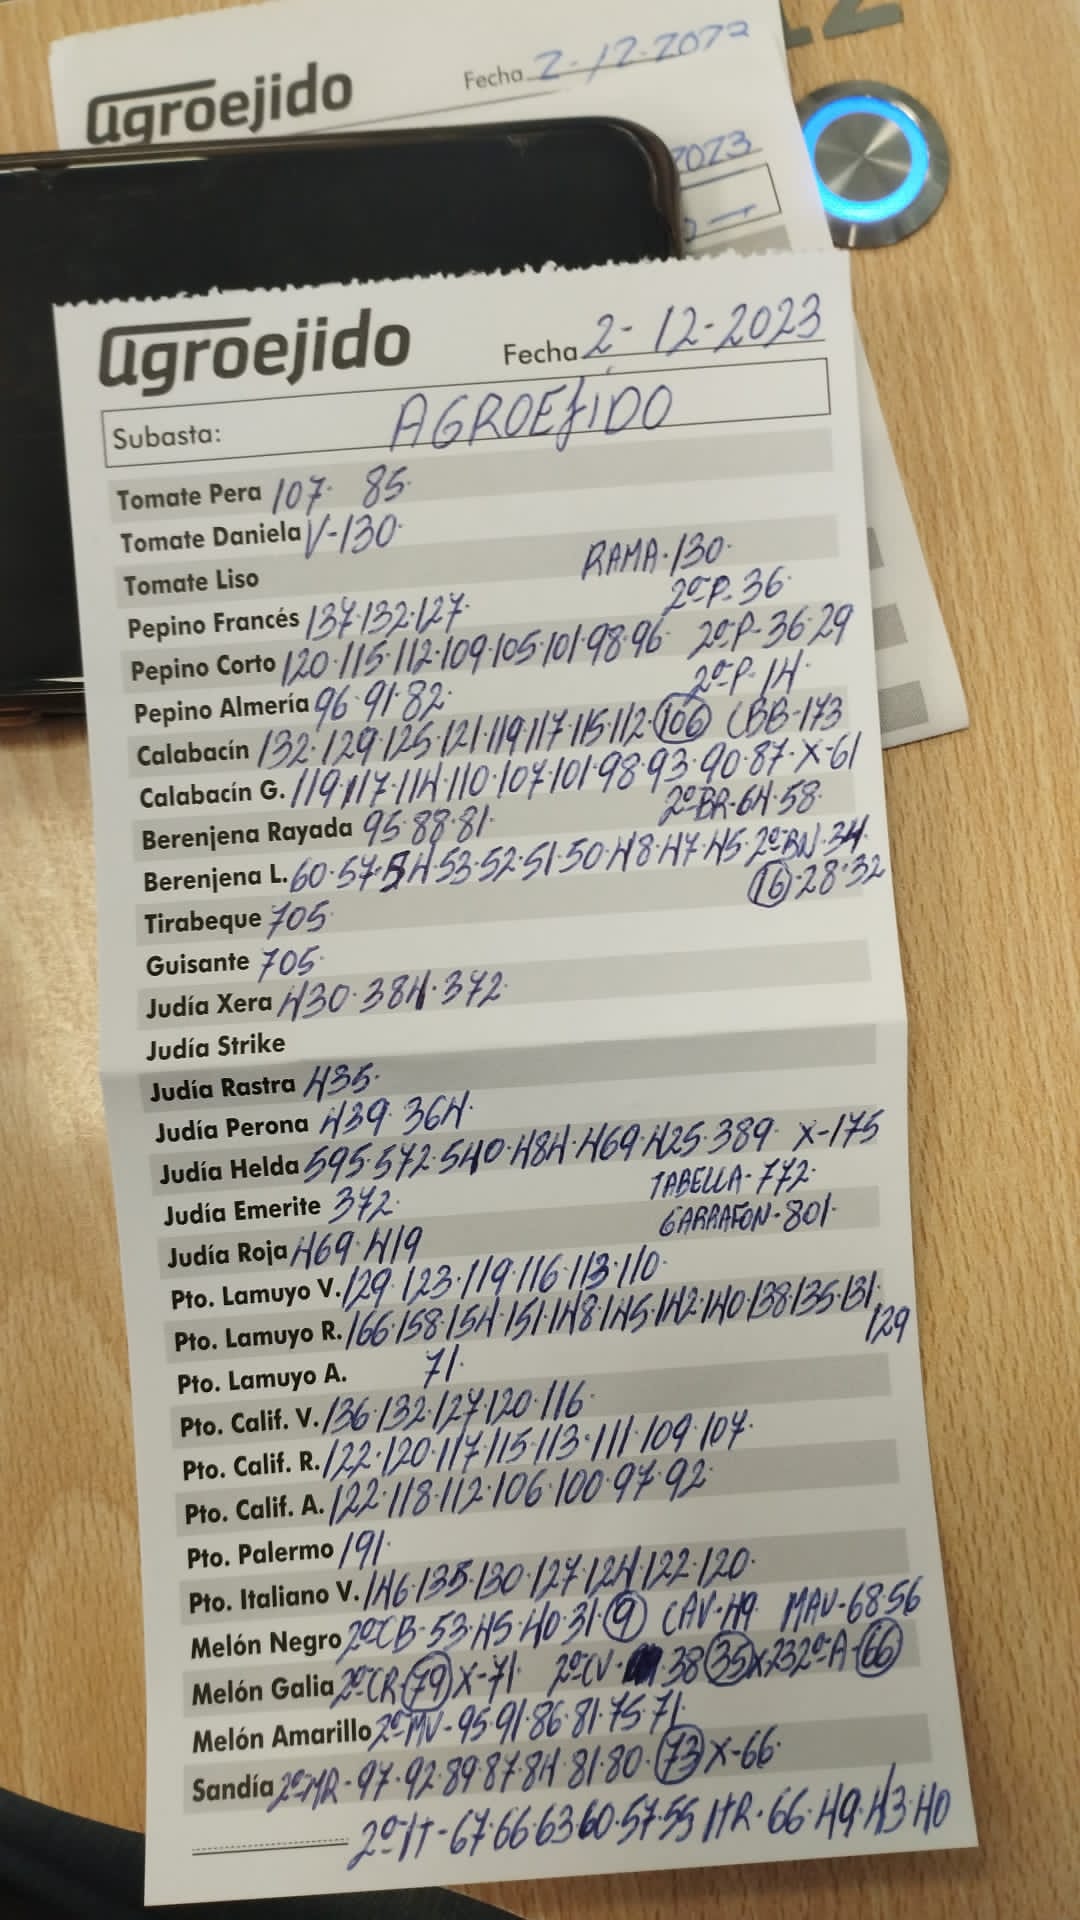 agroejido Fecha 2-12-2023
2023
agroejido
Fecha 2-12-2023
Subasta: AGROEJIDO
Tomate Pera 107· 85·
Tomate Daniela V-130·
Tomate Liso RAMA·130·
Pepino Francés 137·132·127· 2ºP-36·
Pepino Corto 120·115·112·109·105·101·98·96· 2ºP-36·29
Pepino Almería 96·91·82· 2ºP-14·
Calabacín 132·129·125·121·119·117·115·112·106 CBB-173
Calabacín G. 119·117·114·110·107·101·98·93·90·87·X-61
Berenjena Rayada 95·88·81· 2ºBR-64·58·
Berenjena L. 60·57·54·53·52·51·50·48·47·45·2ºBN·34·
16·28·32
Tirabeque 705·
Guisante 705·
Judía Xera 430·384·372·
Judía Strike
Judía Rastra 435·
Judía Perona 439·364·
Judía Helda 595·572·540·484·469·425·389· X-175
Judía Emerite 372· TABELLA-772·
Judía Roja 469·419 GARRAFON·801·
Pto. Lamuyo V. 129·123·119·116·113·110·
Pto. Lamuyo R. 166·158·154·151·148·145·142·140·138·135·131·
129
Pto. Lamuyo A. 71·
Pto. Calif. V. 136·132·127·120·116·
Pto. Calif. R. 122·120·117·115·113·111·109·107·
Pto. Calif. A. 122·118·112·106·100·97·92·
Pto. Palermo 191·
Pto. Italiano V. 146·135·130·127·124·122·120·
Melón Negro 2ºCB-53·45·40·31·9 CAV·49· MAV-68·56
Melón Galia 2ºCR·79 X-71· 2ºCV· 38 35 X-23 2ºA-66
Melón Amarillo 2ºMV-95·91·86·81·75·71·
Sandía 2ºMR-97·92·89·87·84·81·80·73 X-66·
2ºIT-67·66·63·60·57·55 ITR·66·49·43·40